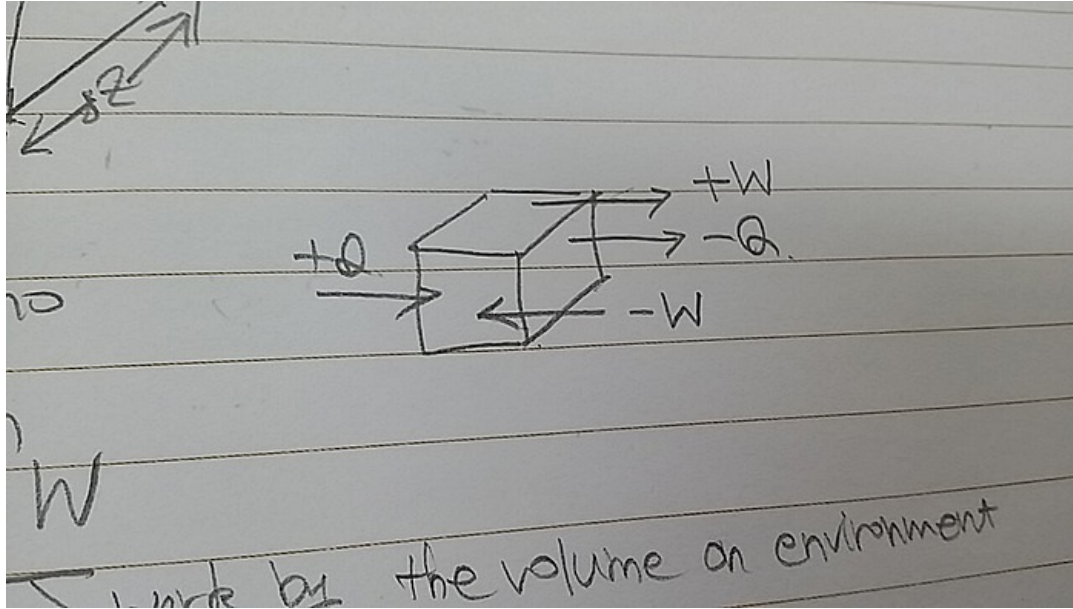 δZ
+W
-Q
+Q
-W
W
work by the volume on environment